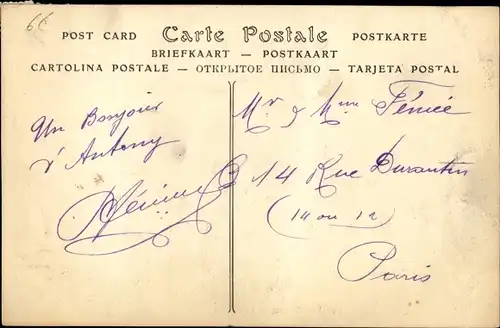 66
POST CARD Carte Postale POSTKARTE
BRIEFKAART — POSTKAART
CARTOLINA POSTALE — ОТКРЫТОЕ ПИСЬМО — TARJETA POSTAL
Un Bonjour
d'Antony
Mr & Mme Fénicé
14 Rue Durantin
(14 ou 12)
Paris